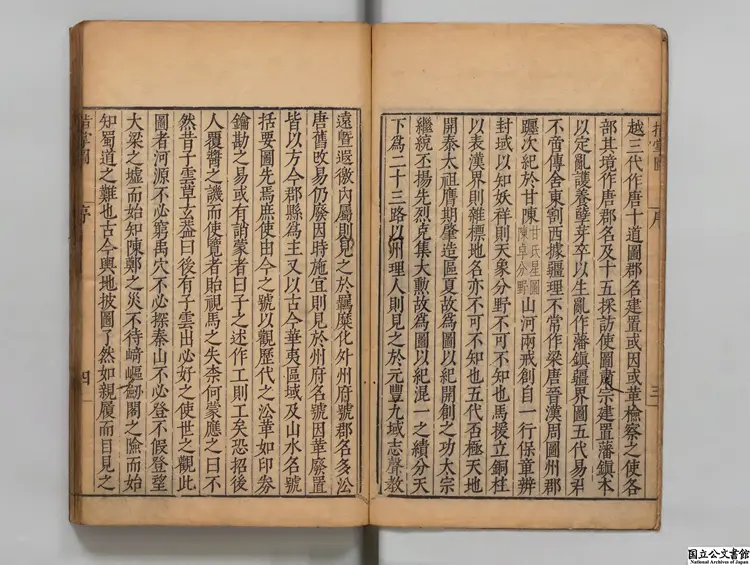 指掌圖 序 三
越三代作唐十道圖郡名建置或因或革檢察之使各
部其境作唐郡名及十五採訪使圖肅宗建置藩鎮本
以定亂護養孽芽卒以生亂作藩鎮疆界圖五代易君
不啻傳舍東割西據疆理不常作梁唐晉漢周圖州郡
躔次紀於甘陳甘氏星圖陳卓分野山河兩戒創自一行俾童辨
封域以知妖祥則天象分野不可不知也馬援立銅柱
以表漢界則雜標地名亦不可不知也五代否極天地
開泰太祖膺期肇造區夏故爲圖以紀開創之功太宗
繼統丕揚先烈克集大勲故爲圖以紀混一之績分天
下爲二十三路以州理人則見之於元豐九域志聲敎
遠暨遐徼內屬則見之於羈縻化外州府號郡名多㳂
唐舊改易仍廢因時施宜則見於州府名號因革廢置
皆以方今郡縣爲主又以古今華夷區域及山水名號
括要圖先焉庶使由今之號以觀歷代之㳂革如印劵
鑰勘之易或有誚蒙者曰子之述作工則工矣恐招後
人覆醬之譏而使覽者貽視馬之失柰何蒙應之曰不
然昔子雲草玄葢曰後有子雲出必好之使世之觀此
圖者河源不必窮禹穴不必探泰山不必登不假登望
大梁之墟而始知陳鄭之災不待﨑嶇劒閣之險而始
知蜀道之難也古今輿地披圖了然如親履而目見之
指掌圖 序 四
国立公文書館
National Archives of Japan